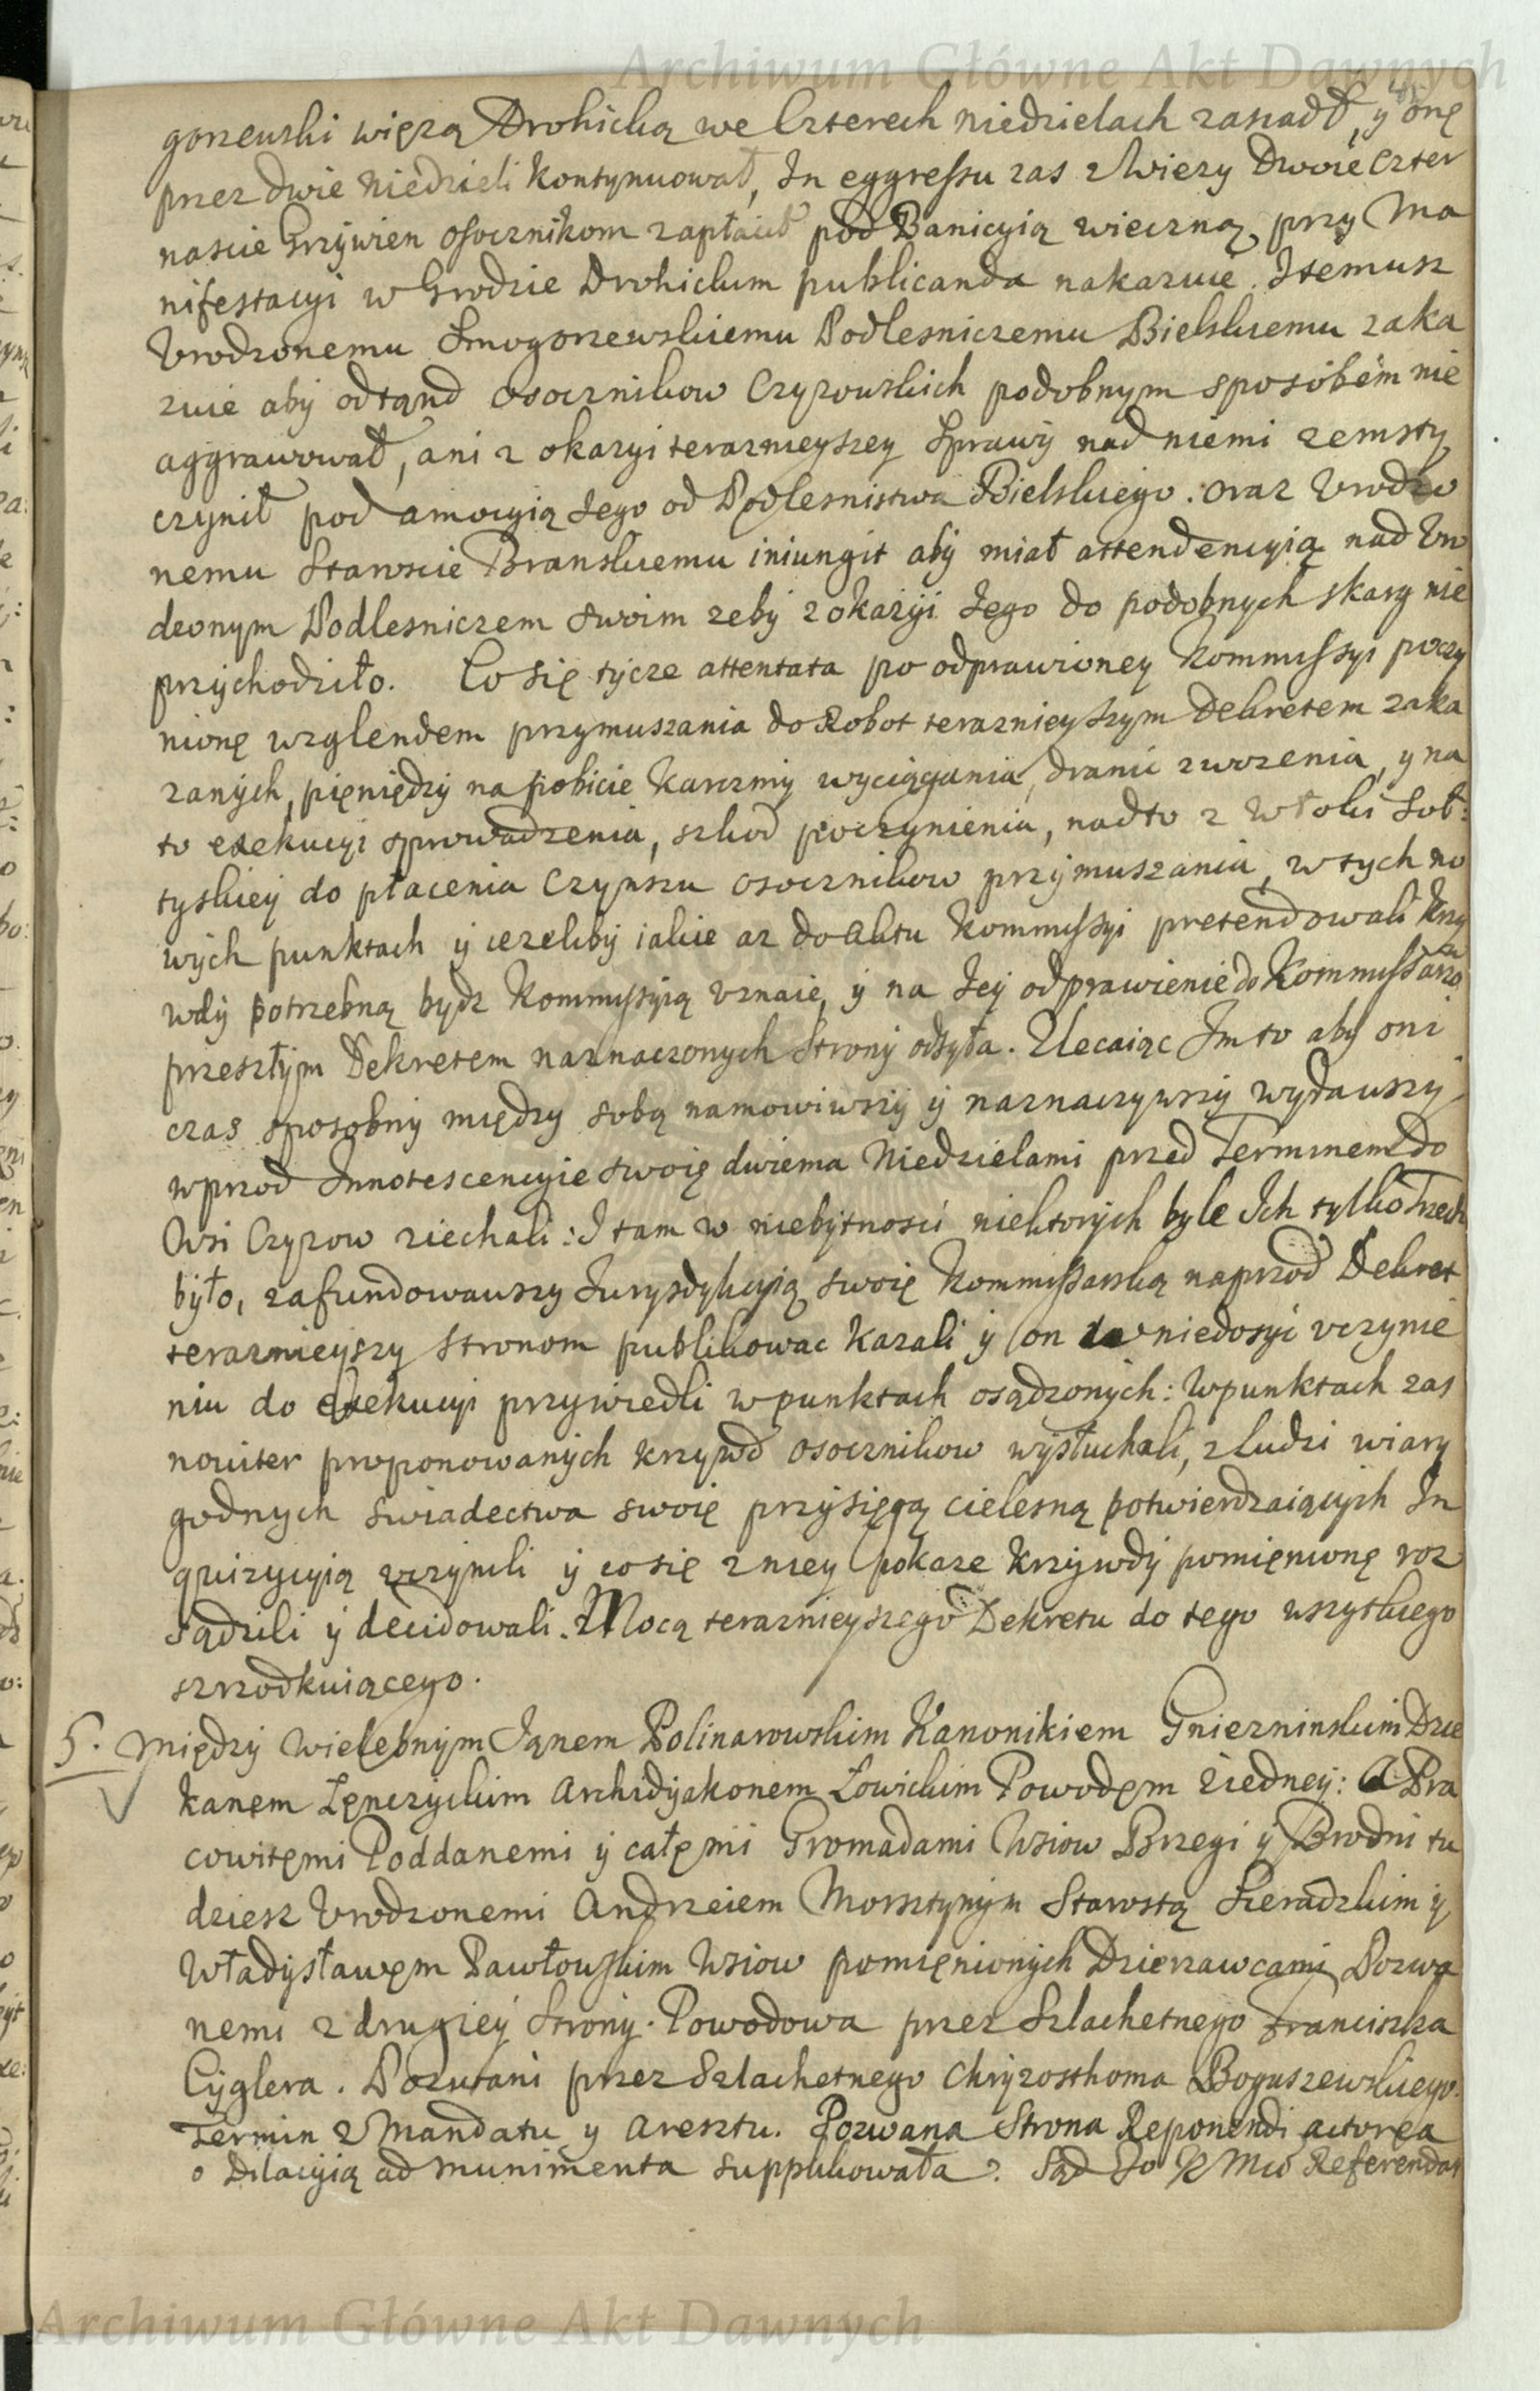 Archiwum Główne Akt Dawnych
gorzewski więzą Drohicką we Czterech niedzielach zasiadł, y onę
przez dwie niedzieli kontynuował, In eggressu zas z Wiezy Dwoie czter
nascie Grzywien osocznikom zapłacił pod Banicyią wieczną przy Ma
nifestacyi w Grodzie Drohickim publicanda nakazuie. Itemusz
Vrodzonemu Smogorzewskiemu Podlesniczemu Bielskiemu zaka
zuie aby odtąnd osocznikow Czyzowskich podobnym sposobem nie
aggrawował, ani z okazyi teraznieyszey Sprawy nad niemi zemsty
czynił pod amocyią Jego od Podlesnistwa Bielskiego. oraz Vrodzo
nemu Staroscie Branskiemu iniungit aby miał attendencyią nad Vro
dzonym Podlesniczem swoim zeby z okazyi Jego do podobnych skarg nie
przychodziło. Co się tycze attentata po odprawioney Kommissyi poczy
nionę wzglendem przymuszania do Robot teraznieyszym Dekretem zaka
zanych, pięniędzy na pobicie Karczmy wyciągania, dranic zwozenia, y na
to exekucyi sprowadzenia, szkod poczynienia, nadto z Włoki Soł:
tyskiey do płacenia Czynszu osocznikow przymuszania, w tych no
wych punktach y iezeliby iakie az do aktu Kommissyi pretendowali krzy
wdy potrzebną bydz Kommissyią vznaie, y na Jey odprawienie do Kommissarzo
przeszłym Dekretem naznaczonych Strony odsyła. Zlecaiąc Im to aby oni
czas sposobny między sobą namowiwszy y naznaczywszy wydawszy
wprzod Innotescencyie swoię dwiema Niedzielami przed Terminem do
Wsi Czyzow ziechali: I tam w niebytnosci niektorych byle Ich tylko Trzech
było, zafundowawszy Jurysdykcyią swoię Kommissarską naprzod Dekret
teraznieyszy Stronom publikowac kazali y on w niedosyć vczynie
niu do exekucyi przywiedli w punktach osądzonych: W punktach zas
nowiter proponowanych krzywd osocznikow wysłuchali, z ludzi wiary
godnych swiadectwa swoię przysięgą cielesną potwierdzaiących In
quizycyią vczynili y co się z niey pokaze krzywdy pomięnionę roz
sądzili y decidowali. Mocą teraznieyszego Dekretu do tego wszytkiego
szrzodkuiącego.
5. Między Wielebnym Janem Polinarowskim Kanonikiem Gnieznin­skim Dzie
kanem Łęnczyckim Archidyakonem Łowickim Powodęm z iedney: A Pra
cowitęmi Poddanemi y całęmi Gromadami Wsiow Brzegi y Brodni tu
dziesz Vrodzonemi Andrzeiem Morsztynym Starostą Sieradzkim y
Władysławęm Pawłowskim Wsiow pomięnionych Dzierzawcami Pozwa
nemi z drugiey Strony. Powodowa przez Szlachetnego Franciszka
Cyglera. Pozwani przez Szlachetnego Chryzosthoma Boguszewskiego.
Termin z Mandatu y Aresztu. Pozwana Strona Reponendi actorea
o Dilacyią ad munimenta supplikowała. Sąd Jo K Mci Referendar
Archiwum Główne Akt Dawnych